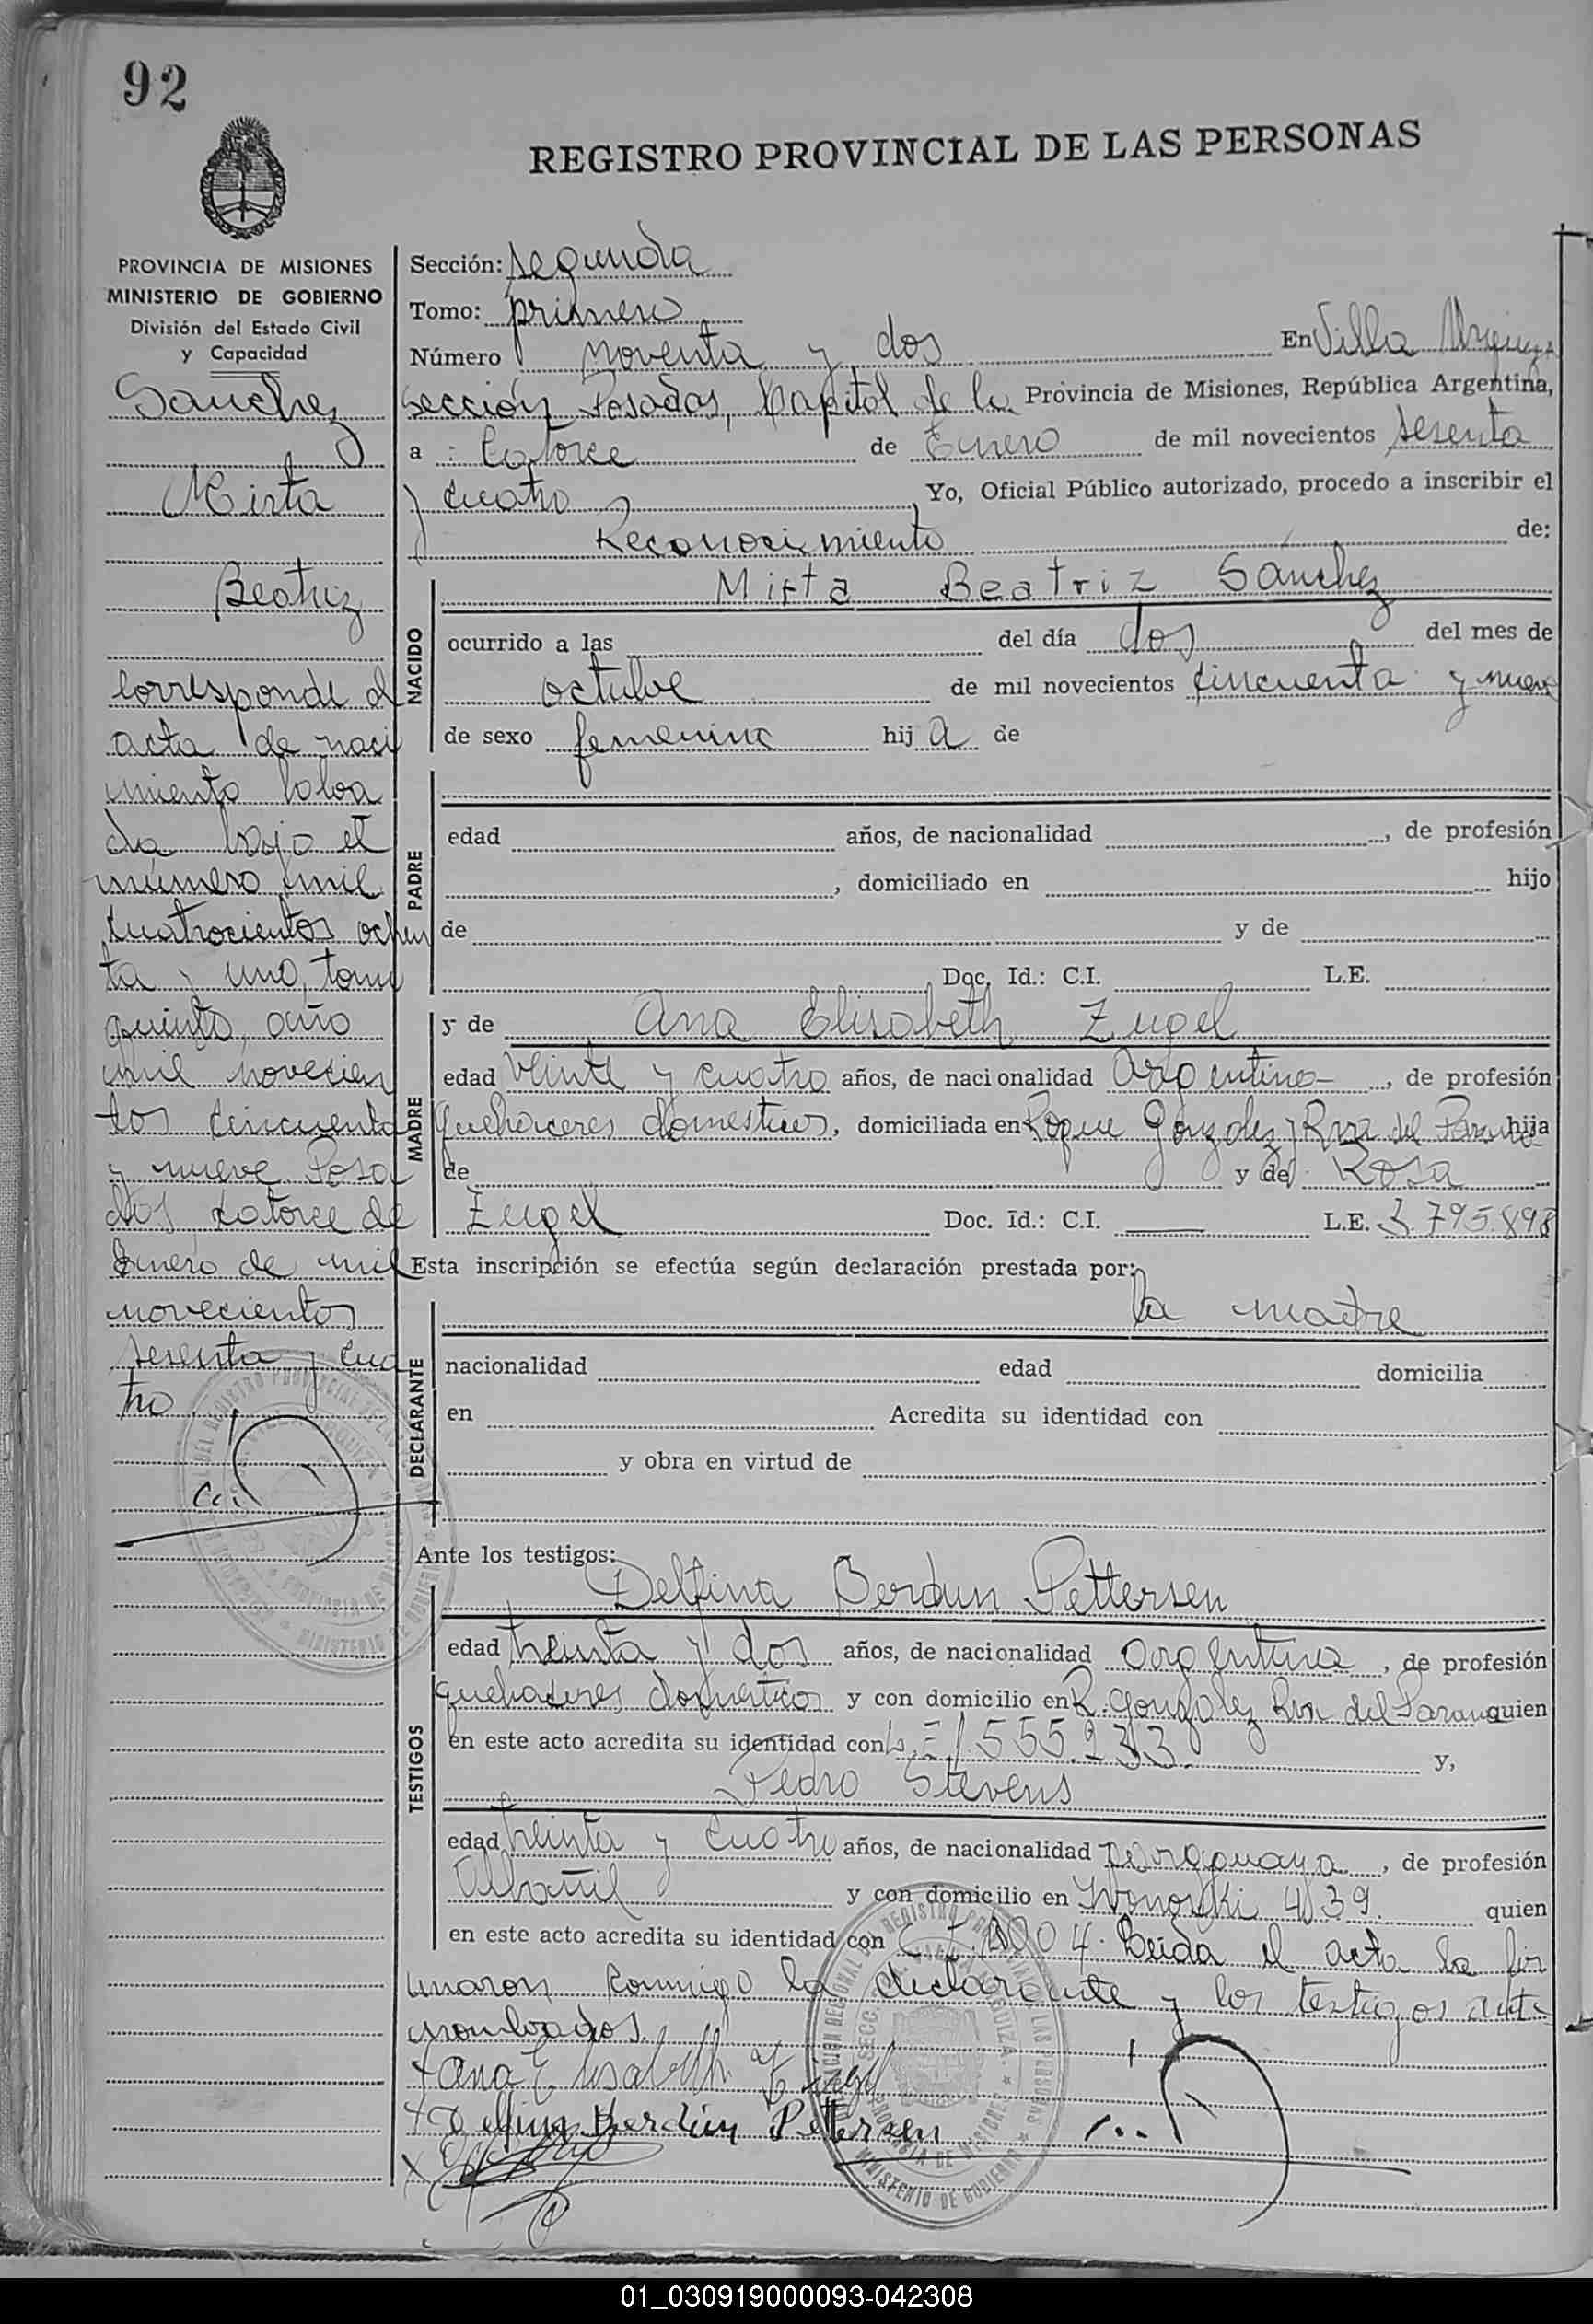 92
REGISTRO PROVINCIAL DE LAS PERSONAS
PROVINCIA DE MISIONES
MINISTERIO DE GOBIERNO
División del Estado Civil
y Capacidad
Sanchez
Mirta
Beatriz
Corresponde al
acta de naci
miento labra
da bajo el
número mil
cuatrocientos ochen
ta y uno, tomo
quinto, año
mil novecien
tos cincuenta
y nueve. Posa
das catorce de
Enero de mil
novecientos
sesenta y cua
tro
Sección: segunda
Tomo: primero
Número noventa y dos En Villa Urquiza
sección Posadas, Capital de la Provincia de Misiones, República Argentina,
a catorce de Enero de mil novecientos sesenta
y cuatro Yo, Oficial Público autorizado, procedo a inscribir el
Reconocimiento de:
NACIDO
Mirta Beatriz Sánchez
ocurrido a las del día dos del mes de
octubre de mil novecientos cincuenta y nueve
de sexo femenino hij a de
PADRE
edad años, de nacionalidad , de profesión
, domiciliado en hijo
de y de
Doc. Id.: C.I. L.E.
MADRE
y de Ana Elisabeth Zugel
edad veinte y cuatro años, de nacionalidad Argentina , de profesión
quehaceres domesticos, domiciliada en Roque Gonzalez y Rva del Parana hija
de y de Rosa
Zugel Doc. Id.: C.I. L.E. 3.795.898
Esta inscripción se efectúa según declaración prestada por:
DECLARANTE
la madre
nacionalidad edad domicilia
en Acredita su identidad con
y obra en virtud de
Ante los testigos:
TESTIGOS
Delfina Berdun Pettersen
edad treinta y dos años, de nacionalidad Argentina , de profesión
quehaceres domesticos y con domicilio en R. Gonzalez Rva del Parana quien
en este acto acredita su identidad con y,
Pedro Stevens
edad treinta y cuatro años, de nacionalidad paraguaya , de profesión
Albañil y con domicilio en quien
en este acto acredita su identidad con Leida el acta la fir
maron conmigo la declarante y los testigos ante
nombrados.
Ana Elisabeth Zugel
Delfina Berdún Pettersen
01_030919000093-042308